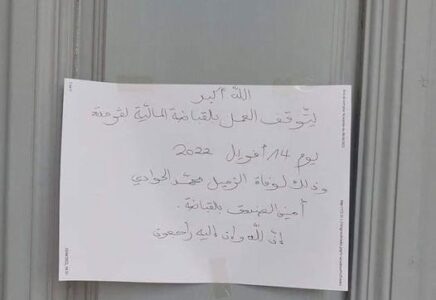 الله أكبر
يتوقف العمل بالقباضة المالية لقرمدة
يوم 14 أفريل 2022
وذلك لوفاة الزميل محمد الحوادي
أمين الصندوق بالقباضة.
إنا لله وإنا إليه راجعون